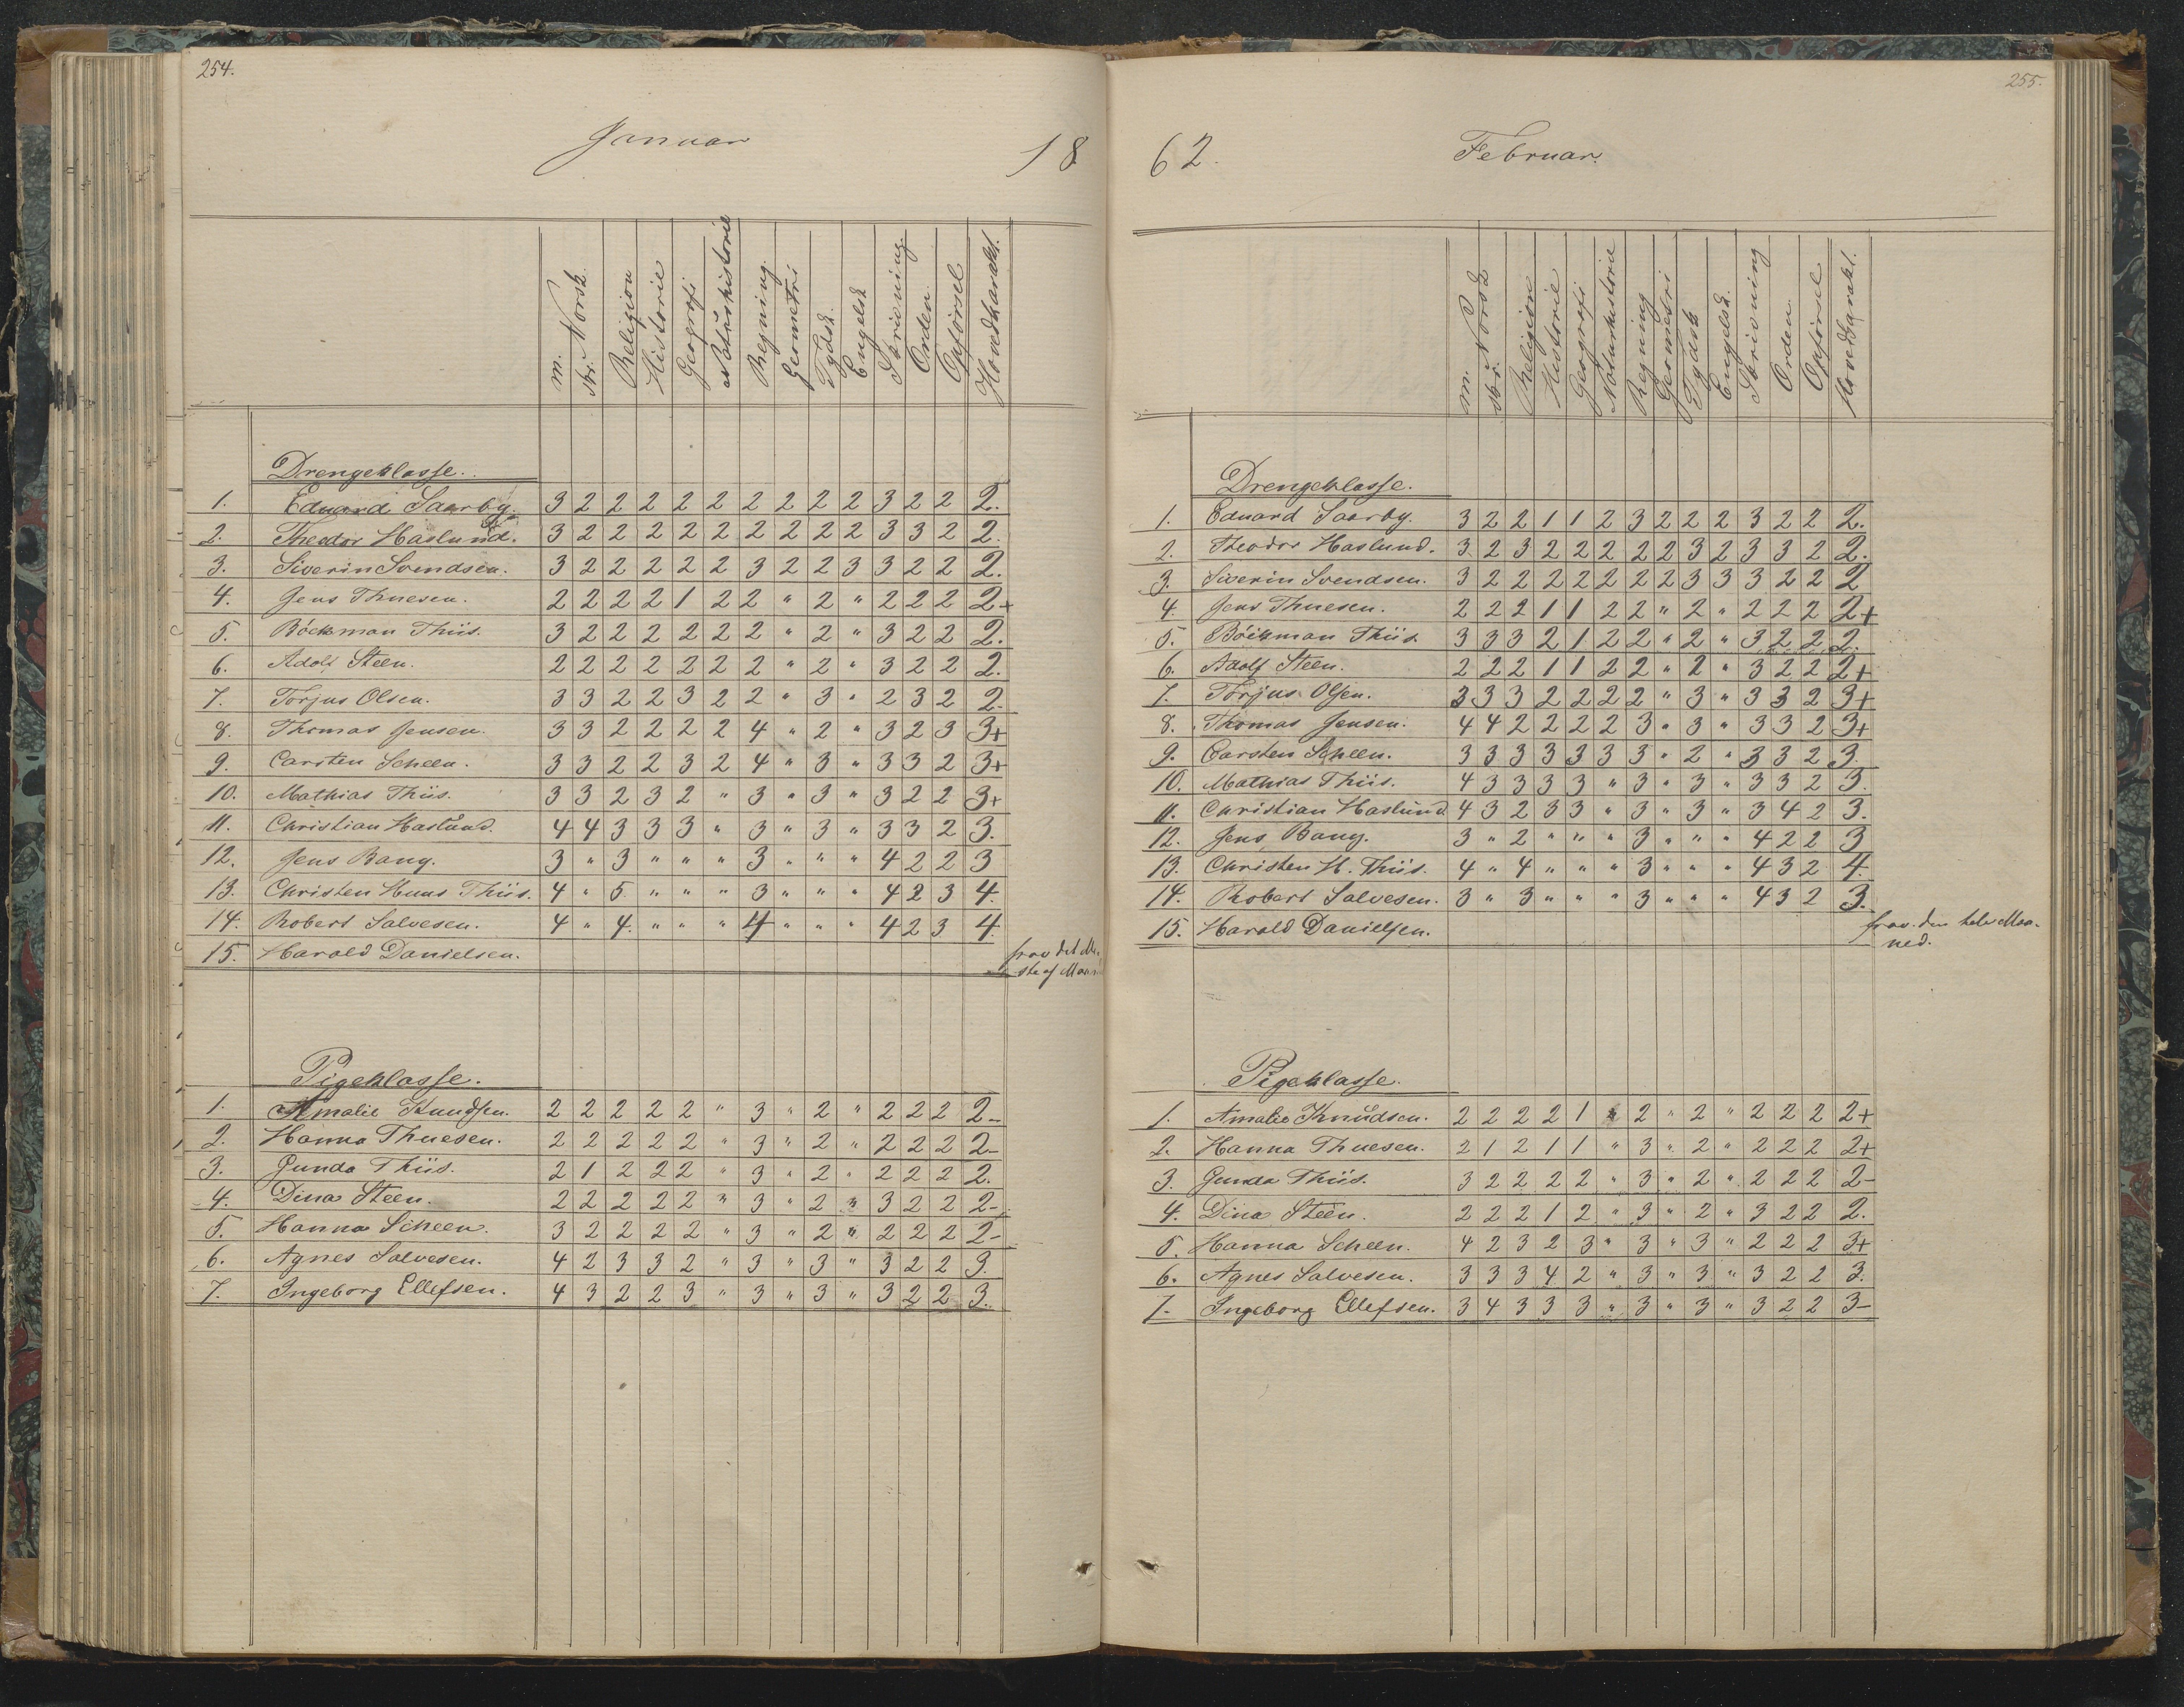 254.
Januar
18
m. skr. Norsk. Religion Historie Geografi Naturhistorie Regning. Geometri Tydsk. Engelsk Skrivning Orden. Opførsel Hovedkarakt.
Drengeklasse.
1. Eduard Saarby. 3 2 2 2 2 2 2 2 2 2 3 2 2 2.
2. Theodor Haslund. 3 2 2 2 2 2 2 2 2 2 3 3 2 2.
3. Siverin Svendsen. 3 2 2 2 2 2 3 2 2 3 3 2 2 2.
4. Jens Thuesen. 2 2 2 2 1 2 2 " 2 " 2 2 2 2+
5. Böckman Thiis. 3 2 2 2 2 2 2 " 2 " 3 2 2 2.
6. Adolf Steen. 2 2 2 2 2 2 2 " 2 " 3 2 2 2.
7. Torjus Olsen. 3 3 2 2 3 2 2 " 3 " 2 3 2 2-
8. Thomas Jensen. 3 3 2 2 2 2 4 " 2 " 3 2 3 3+
9. Carsten Scheen. 3 3 2 2 3 2 4 " 3 " 3 3 2 3+
10. Mathias Thiis. 3 3 2 3 2 " 3 " 3 " 3 2 2 3+
11. Christian Haslund. 4 4 3 3 3 " 3 " 3 " 3 3 2 3.
12. Jens Bang. 3 " 3 " " " 3 " " " 4 2 2 3
13. Christen Huus Thiis. 4 " 5 " " " 3 " " " 4 2 3 4.
14. Robert Salvesen. 4 " 4. " " " 4 " " " 4 2 3 4.
15. Harald Danielsen. frav det Me-
ste af Maan
Pigeklasse.
1. Amalie Knudsen. 2 2 2 2 2 " 3 " 2 " 2 2 2 2-
2. Hanna Thuesen. 2 2 2 2 2 " 3 " 2 " 2 2 2 2-
3. Gunda Thiis. 2 1 2 2 2 " 3 " 2 " 2 2 2 2.
4. Dina Steen. 2 2 2 2 2 " 3 " 2 " 3 2 2 2-
5. Hanna Scheen. 3 2 2 2 2 " 3 " 2 " 2 2 2 2-
6. Agnes Salvesen. 4 2 3 3 2 " 3 " 3 " 3 2 2 3.
7. Ingeborg Ellefsen. 4 3 2 2 3 " 3 " 3 " 3 2 2 3.
255.
62.
Februar.
m. skr. Norsk Religion Historie Geografi Naturhistorie Regning Geometri Tydsk Engelsk. Skrivning Orden Opførsel Hovedkarakt.
Drengeklasse.
1. Eduard Saarby. 3 2 2 1 1 2 3 2 2 2 3 2 2 2.
2. Theodor Haslund. 3 2 3 2 2 2 2 2 3 2 3 3 2 2.
3. Siverin Svendsen. 3 2 2 2 2 2 2 2 3 3 3 2 2 2
4. Jens Thuesen. 2 2 2 1 1 2 2 " 2 " 2 2 2 2+
5. Böckman Thiis. 3 3 3 2 1 2 2 " 2 " 3 2 2 2.
6. Adolf Steen. 2 2 2 1 1 2 2 " 2 " 3 2 2 2+
7. Torjus Olsen. 3 3 3 2 2 2 2 " 3 " 3 3 2 3+
8. Thomas Jensen. 4 4 2 2 2 2 3 " 3 " 3 3 2 3+
9. Carsten Scheen. 3 3 3 3 3 3 3 " 2 " 3 3 2 3.
10. Mathias Thiis. 4 3 3 3 3 " 3 " 3 " 3 3 2 3.
11. Christian Haslund 4 3 2 3 3 " 3 " 3 " 3 4 2 3.
12. Jens Bang. 3 " 2 " " " 3 " " " 4 2 2 3
13. Christen H. Thiis. 4 " 4 " " " 3 " " " 4 3 2 4.
14. Robert Salvesen. 3 " 3 " " " 3 " " " 4 3 2 3.
15. Harald Danielsen. frav. den hele Maa-
ned.
Pigeklasse.
1. Amalie Knudsen. 2 2 2 2 1 " 2 " 2 " 2 2 2 2+
2. Hanna Thuesen. 2 1 2 1 1 " 3 " 2 " 2 2 2 2+
3. Gunda Thiis. 3 2 2 2 2 " 3 " 2 " 2 2 2 2-
4. Dina Steen. 2 2 2 1 2 " 3 " 2 " 3 2 2 2.
5. Hanna Scheen. 4 2 3 2 3 " 3 " 3 " 2 2 2 3+
6. Agnes Salvesen. 3 3 3 4 2 " 3 " 3 " 3 2 2 3.
7. Ingeborg Ellefsen. 3 4 3 3 3 " 3 " 3 " 3 2 2 3-